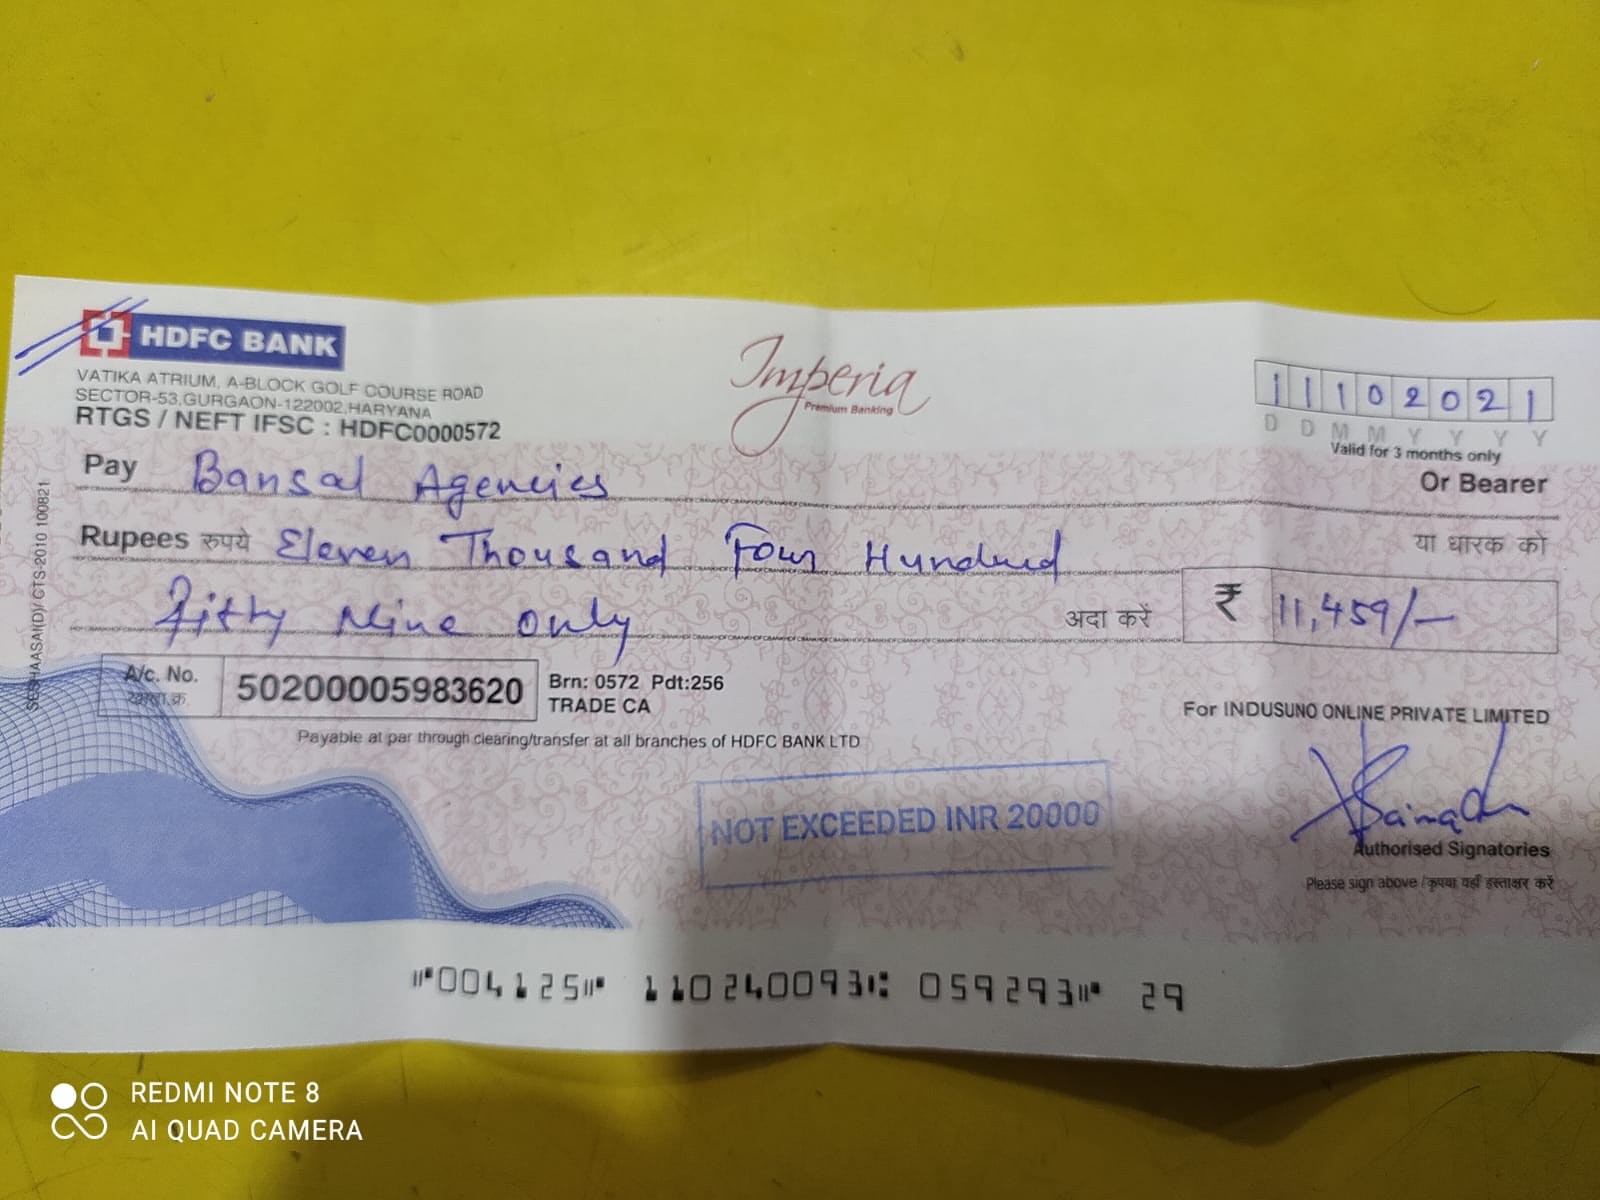 HDFC BANK
VATIKA ATRIUM, A-BLOCK GOLF COURSE ROAD
SECTOR-53,GURGAON-122002,HARYANA
RTGS / NEFT IFSC : HDFC0000572
Imperia
Premium Banking
11102021
D D M M Y Y Y Y
Valid for 3 months only
Pay Bansal Agencies
Or Bearer
Rupees रुपये Eleven Thousand Four Hundred
या धारक को
Fifty Nine Only
अदा करें ₹ 11,459/-
A/c. No.
खाता क्र.
50200005983620
Brn: 0572 Pdt:256
TRADE CA
Payable at par through clearing/transfer at all branches of HDFC BANK LTD
For INDUSUNO ONLINE PRIVATE LIMITED
NOT EXCEEDED INR 20000
Authorised Signatories
Please sign above / कृपया यहाँ हस्ताक्षर करें
⑈004125⑈ 110240093⑆ 059293⑈ 29
CTS-2010 100821
REDMI NOTE 8
AI QUAD CAMERA